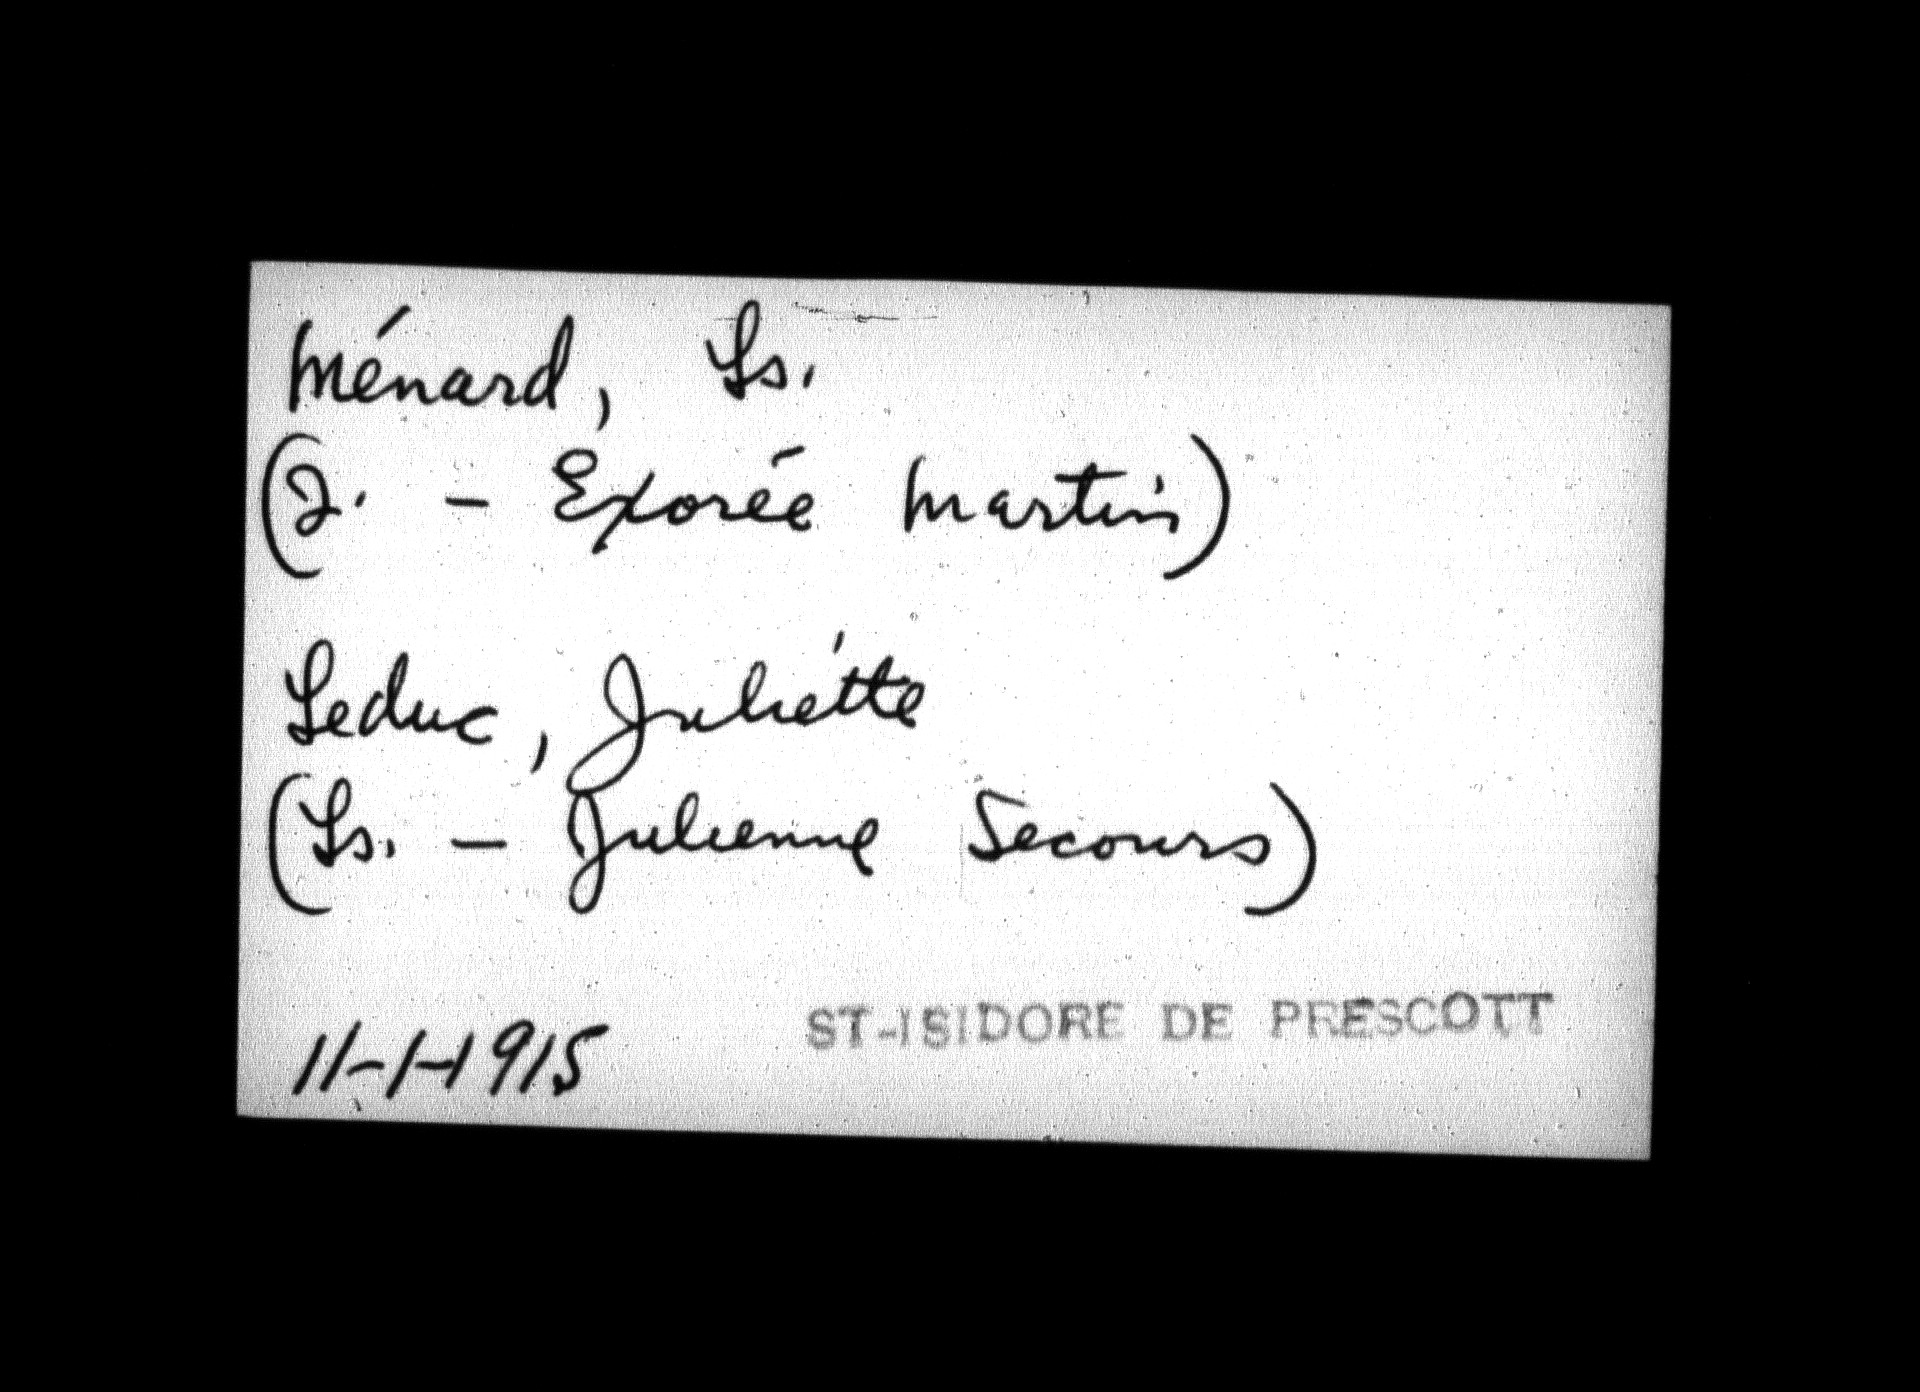 Ménard, Ls.
(J. - Exorée Martin)
Leduc, Juliétte
(Ls. - Julienne Secours)
11-1-1915
ST-ISIDORE DE PRESCOTT